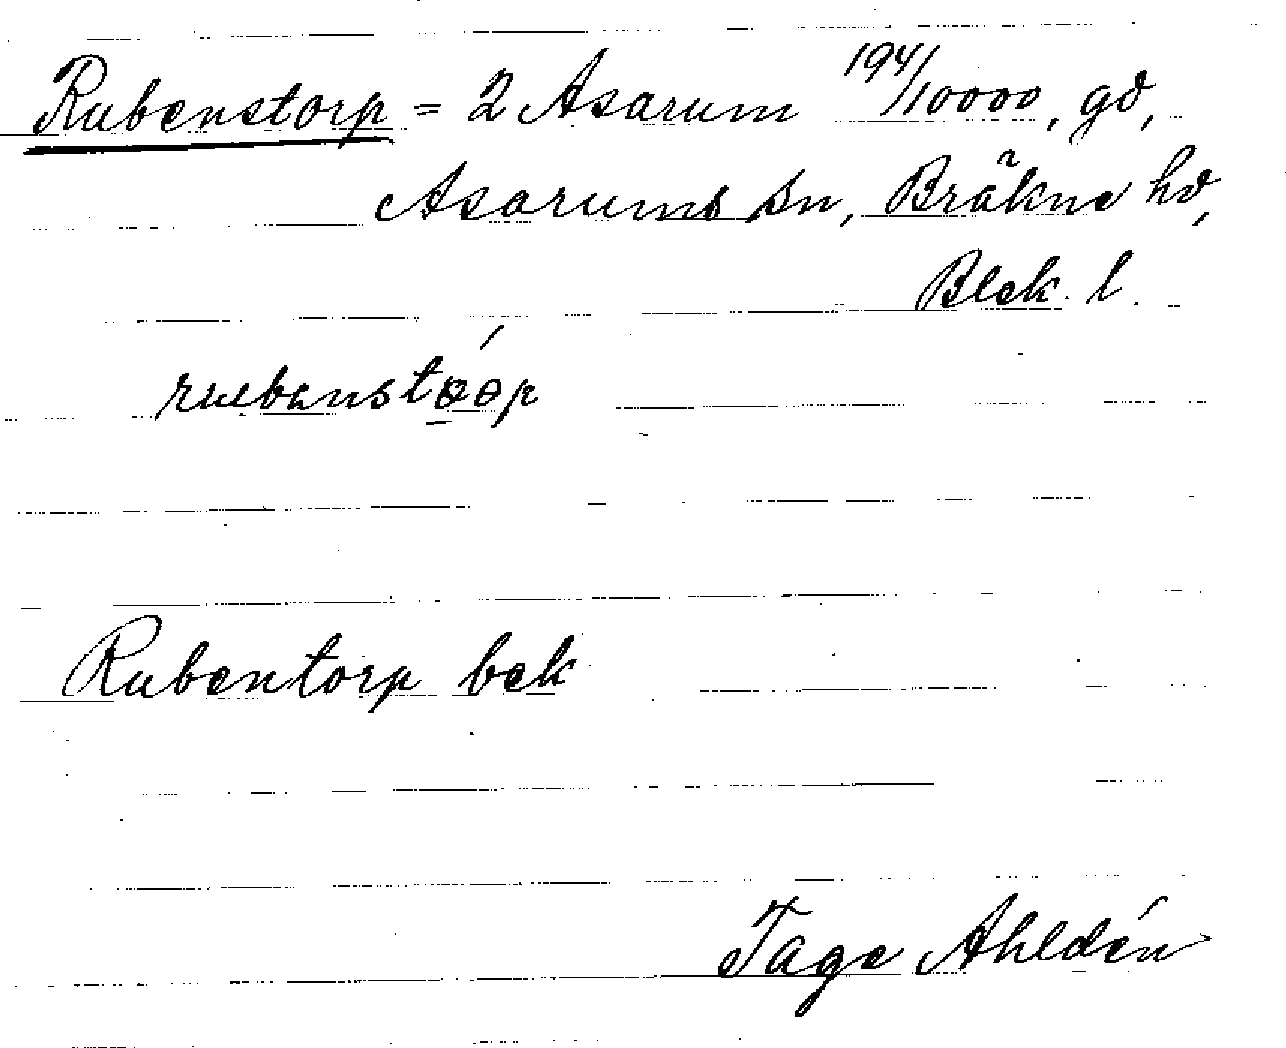 Rubenstorp = 2 Asarum 194/10000, gd,
Asarums sn, Bräkne hd,
Blek. l.
Rubentorp bek
Tage Ahldén